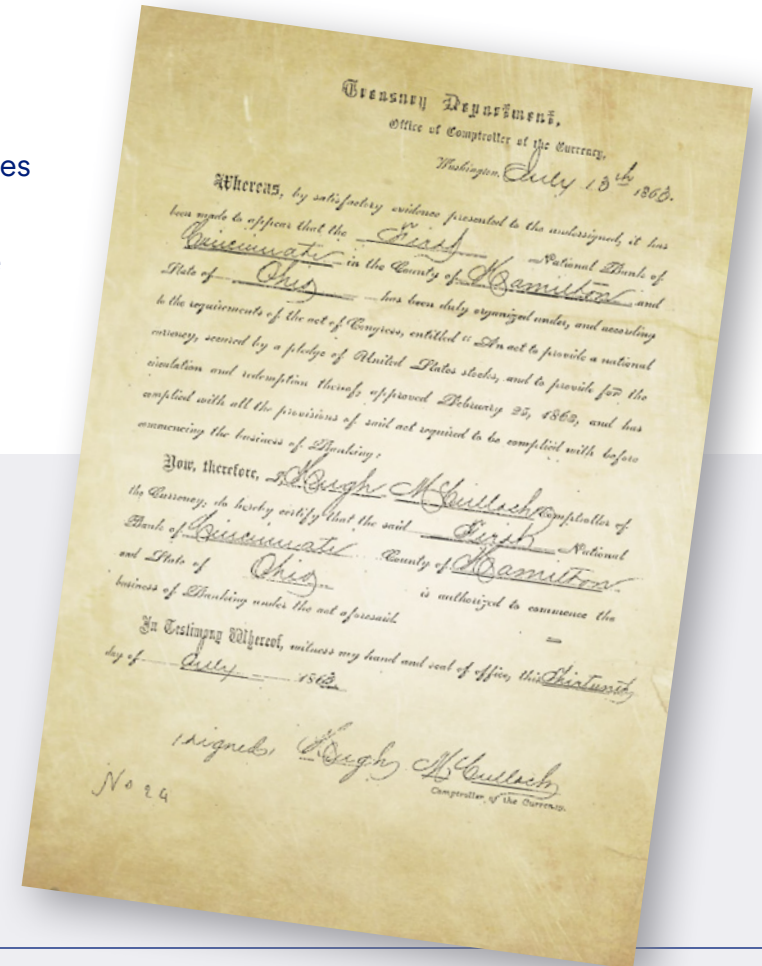 es
Treasury Department,
Office of Comptroller of the Currency,
Washington, July 13th 1863.
Whereas, by satisfactory evidence presented to the undersigned, it has
been made to appear that the First National Bank of
Cincinnati in the County of Hamilton and
State of Ohio has been duly organized under, and according
to the requirements of the act of Congress, entitled "An act to provide a national
currency, secured by a pledge of United States stocks, and to provide for the
circulation and redemption thereof, approved February 25, 1863, and has
complied with all the provisions of said act required to be complied with before
commencing the business of Banking:
Now, therefore, I Hugh McCulloch Comptroller of
the Currency, do hereby certify that the said First National
Bank of Cincinnati County of Hamilton
and State of Ohio is authorized to commence the
business of Banking under the act aforesaid.
In Testimony Whereof, witness my hand and seal of office, this Thirteenth
day of July 1863
(signed) Hugh McCulloch
Comptroller of the Currency.
No 24